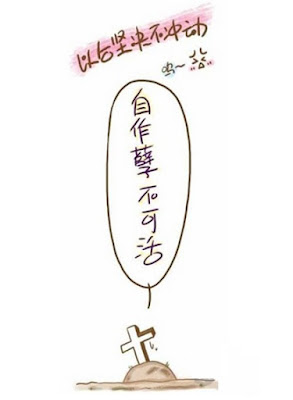 以后坚决不冲动
呜~
自作孽不可活